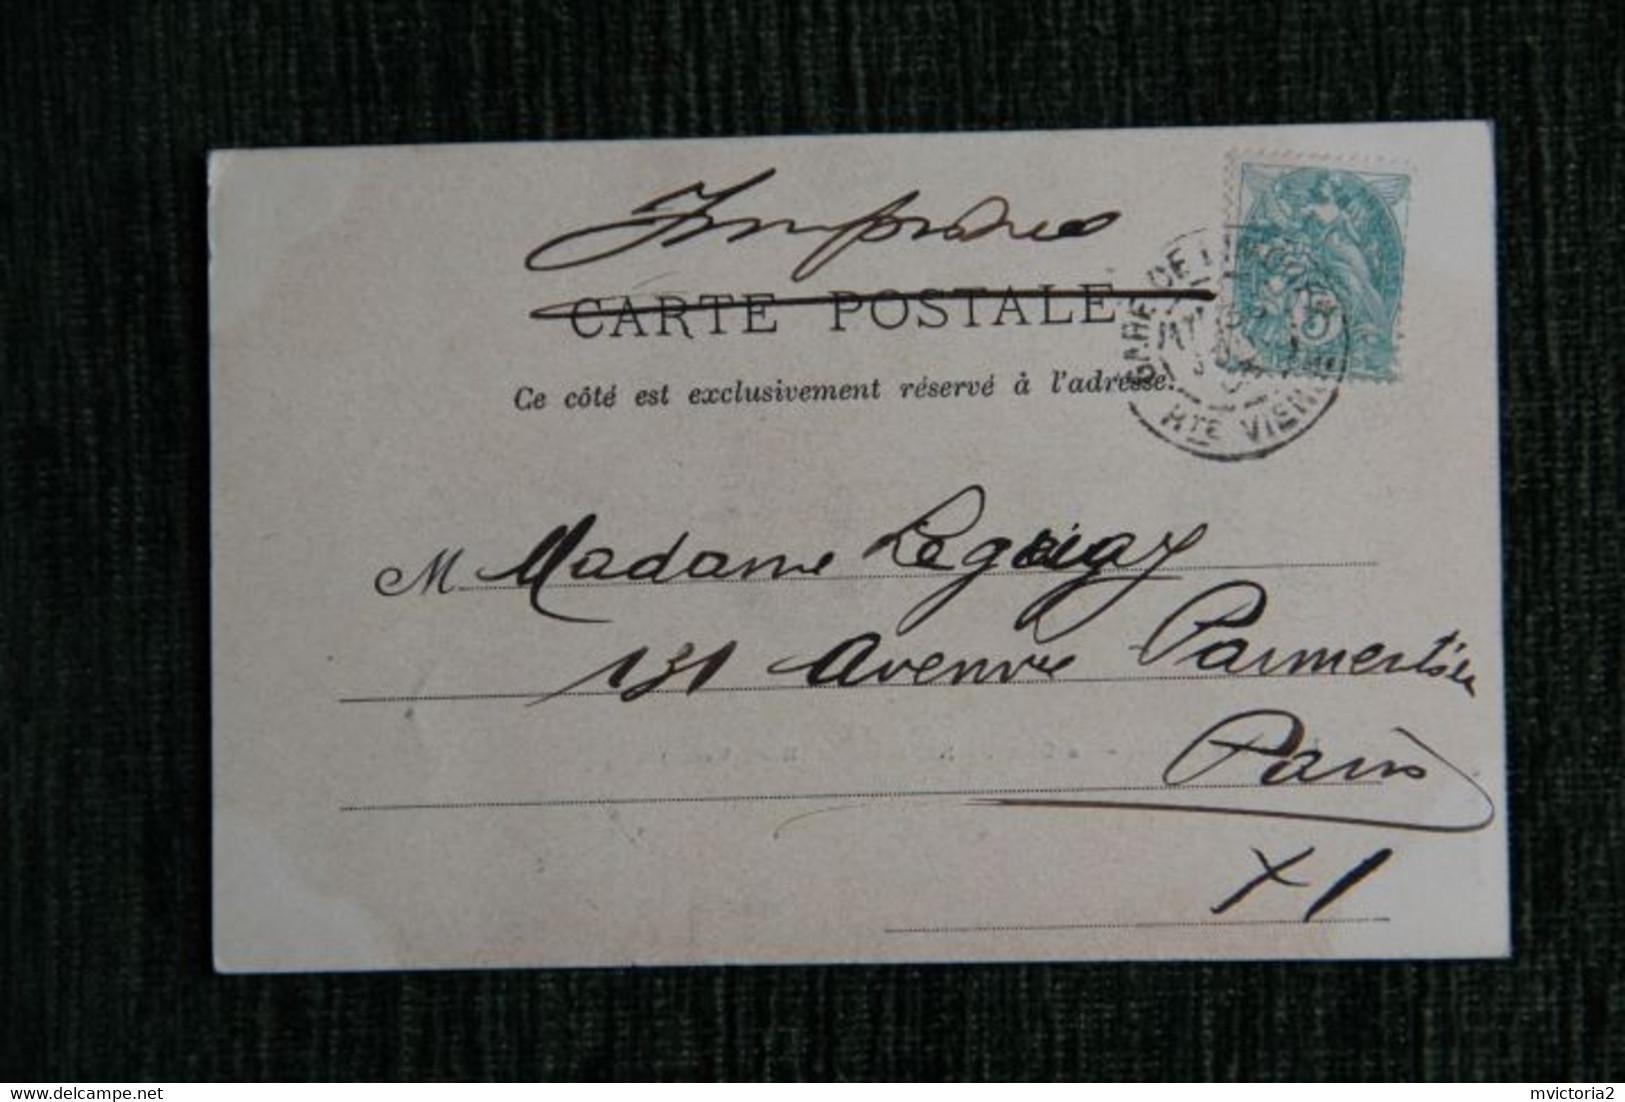 Imprimé
CARTE POSTALE
Ce côté est exclusivement réservé à l'adresse.
GARE DE LIMOGES
HTE VIENNE
5
M Madame
131 Avenue Parmentier
Paris
XI
delcampe.net
mvictoria2